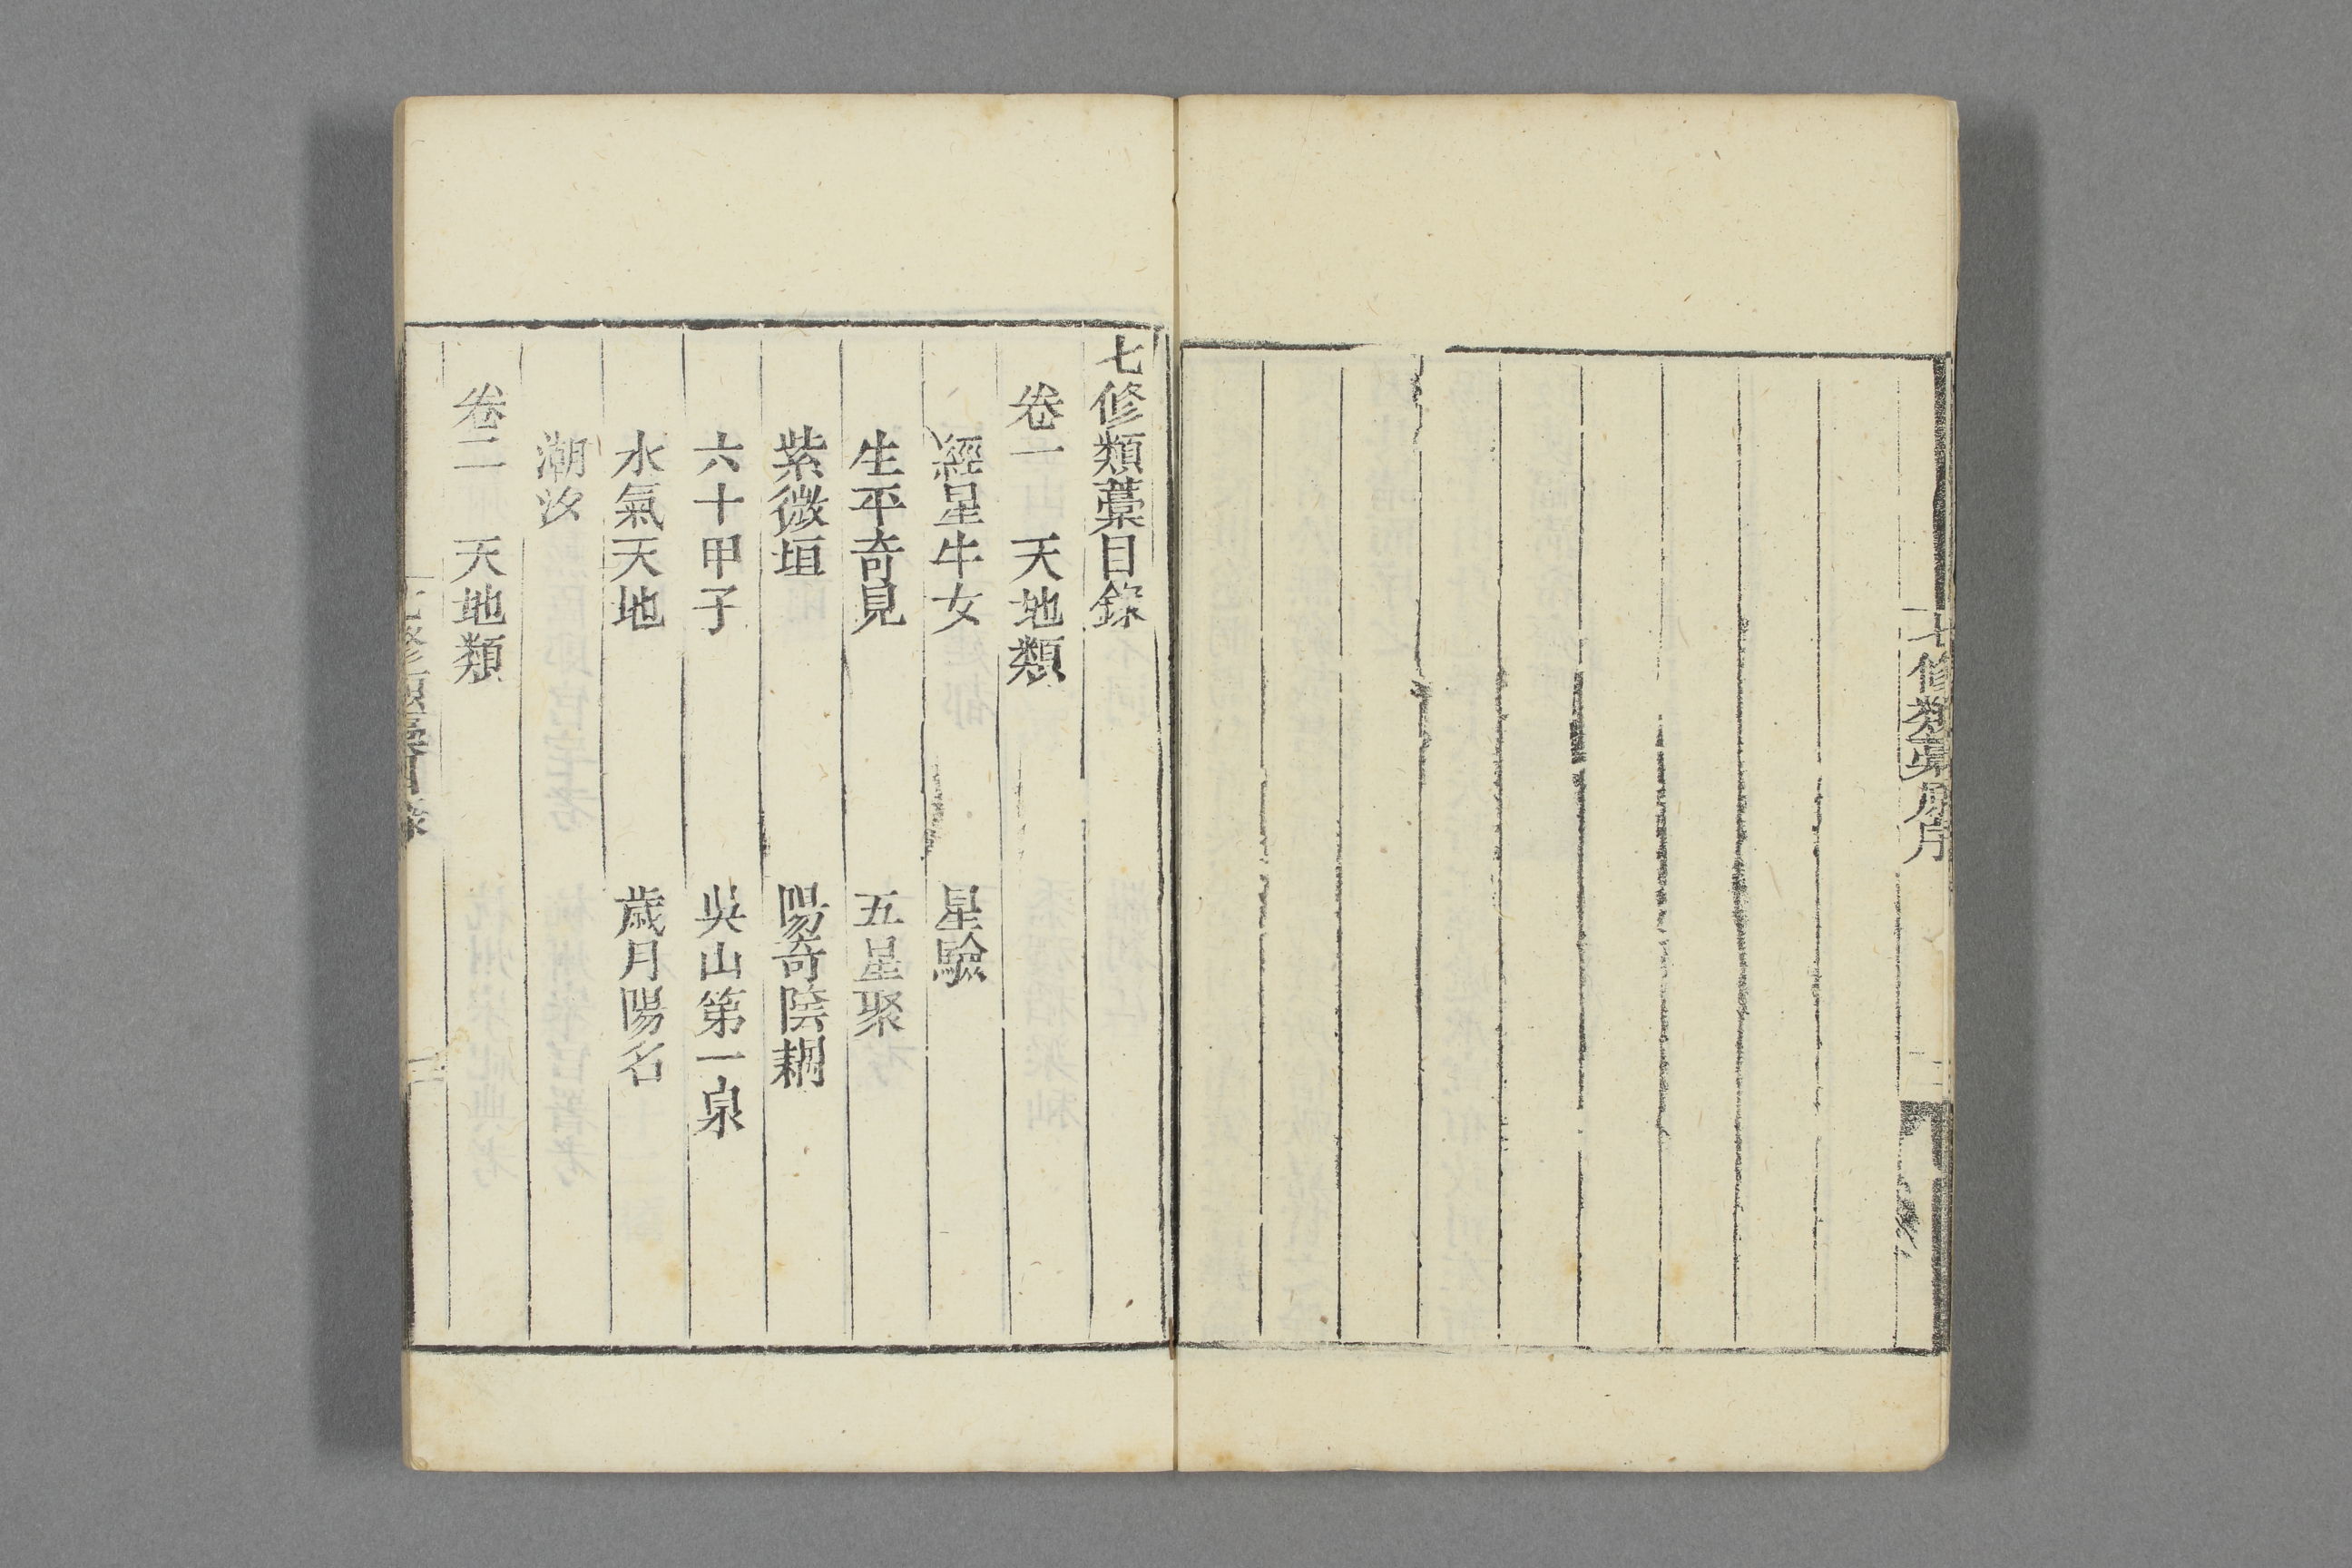 七修類藁原序
七修類藁目錄
卷一 天地類
經星牛女 星驗
生平奇見 五星聚
紫微垣 陽奇陰耦
六十甲子 吳山第一泉
水氣天地 歲月陽名
潮汐
卷二 天地類
七修類藁目錄